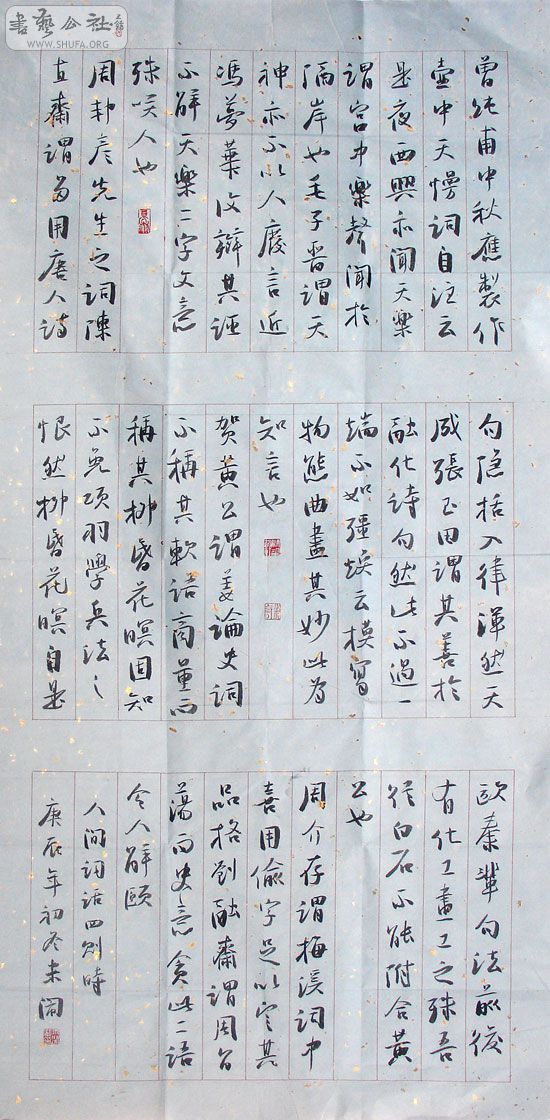 書藝公社
WWW.SHUFA.ORG
曾純甫中秋應製作
壺中天慢詞自注云
是夜西興亦聞天樂
謂宮中樂聲聞於
隔岸也毛子晉謂天
神亦不以人廢言近
馮夢華復辯其誣
不解天樂二字文意
殊笑人也
周邦彥先生之詞陳
直齋謂多用唐人詩
句隱括入律渾然天
成張玉田謂其善於
融化詩句然此不過一
端不如彊煥云模寫
物態曲盡其妙此為
知言也
賀黃公謂姜論史詞
不稱其軟語商量而
稱其柳昏花暝固知
不免項羽學兵法之
恨然柳昏花暝自是
歐秦輩句法前後
有化工畫工之殊吾
從白石不能附合黃
公也
周介存謂梅溪詞中
喜用偷字足以定其
品格劉融齋謂周旨
蕩而史意貪此二語
令人解頤
人間詞話四則時
庚辰年初冬未